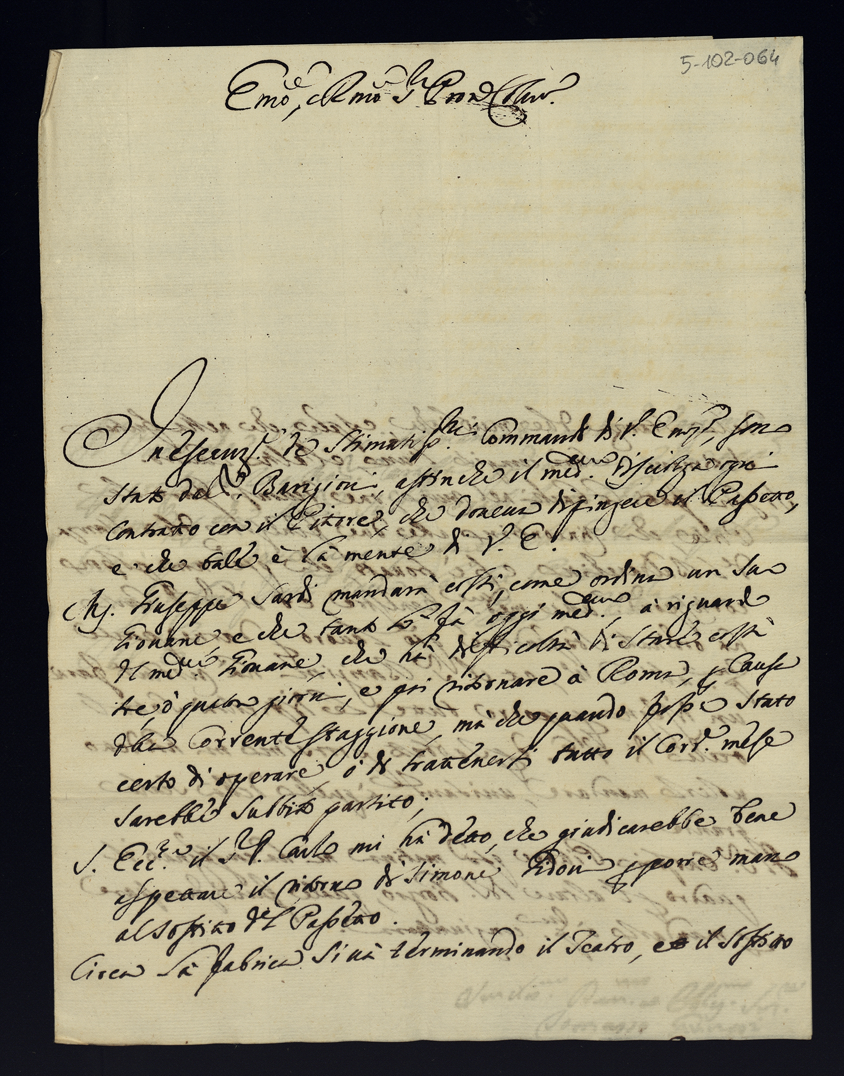 5-102-064
Emo, e Rmo Sr Pron Collmo.
In essecuz.e de Stimatiss.mi Commandi di V. Em.za, sono
stato dal Sr. Barigioni, affinche il med.mo disciolga ogni
contratto con il Pittore, che doveva dipingere il Passetto,
e che tale è la mente di V. E.
Giuseppe Sardi mandarà costì, come ordina un suo
Giovane, e che tanto fà oggi med.mo, a riguardo
del med.mo Giovane, che hà difficoltà di stare costì
tre, ò quatro giorni, e poi ritornare à Roma, p causa
della corrente staggione, mà che quando fosse stato
certo di operare, ò di trattenersi tutto il corr.e mese
sarebbe subbito partito;
S. Ecc.za il Sr. D. Carlo mi hà detto, che giudicarebbe bene
aspettare il ritorno di Simone p porre mano
al soffitto del Passetto.
Circa la fabrica si và terminando il Teatro, e il soffitto